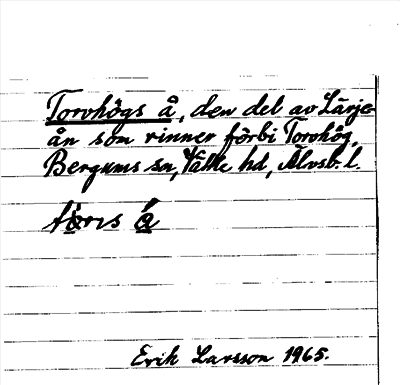 Torvhögs å, den del av Lärje-
ån som rinner förbi Torvhög,
Bergums sn, Vättle hd, Älvsb. l.
å
Erik Larsson 1965.